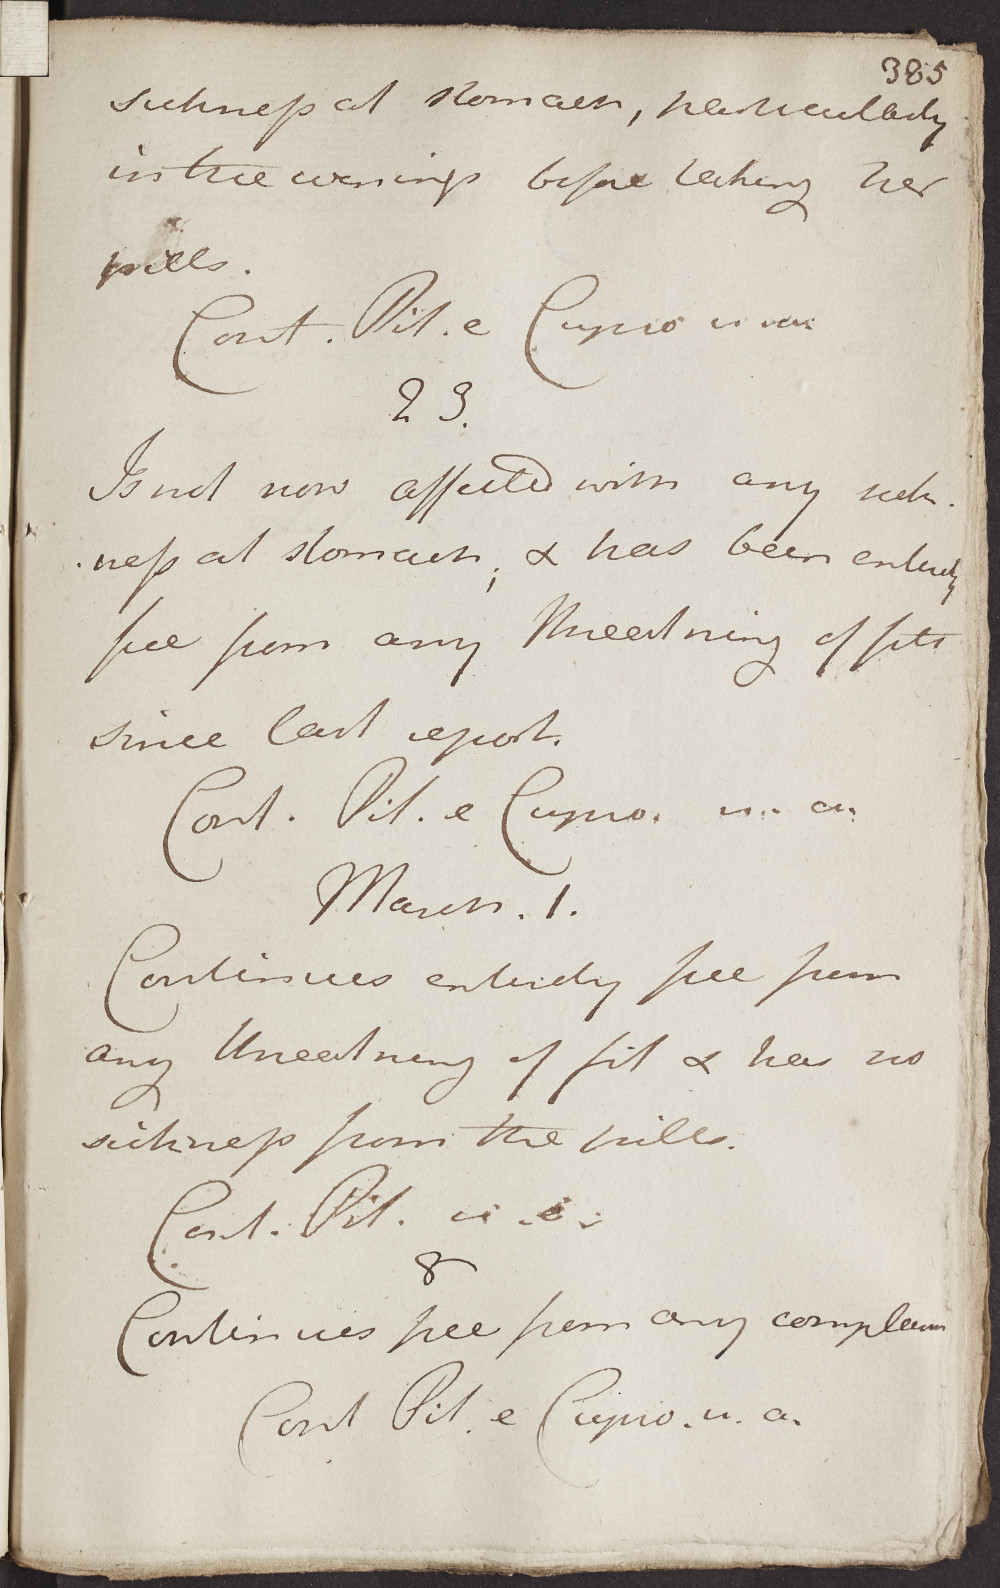 385
sickness at stomach, particularly
in the evenings before taking her
pills.
Cont. Pil. e Cupro u.
23.
Is not now affected with any sick-
-ness at stomach, & has been entirely
free from any threatning of fits
since last report.
Cont. Pil. e Cupro. u. a.
March. 1.
Continues entirely free from
any threatning of fit & has no
sickness from the pills.
Cont. Pil.
8
Continues free from any complain
Cont Pil. e Cupro. u. a.